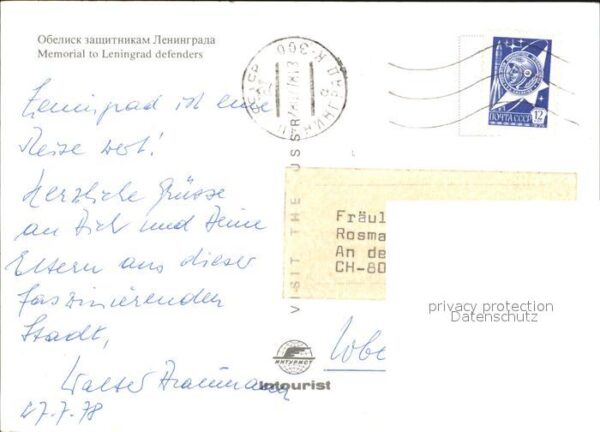 Обелиск защитникам Ленинграда
Memorial to Leningrad defenders
Leningrad ist eine
Reise wert!
Herzliche Grüsse
an Dich und Deine
Eltern aus dieser
faszinierenden
Stadt,
Walter
27.7.78
ПОЧТА СССР 12
VISIT THE USSR
Fräul
Rosma
An de
CH-80
privacy protection
Datenschutz
ИНТУРИСТ
Intourist